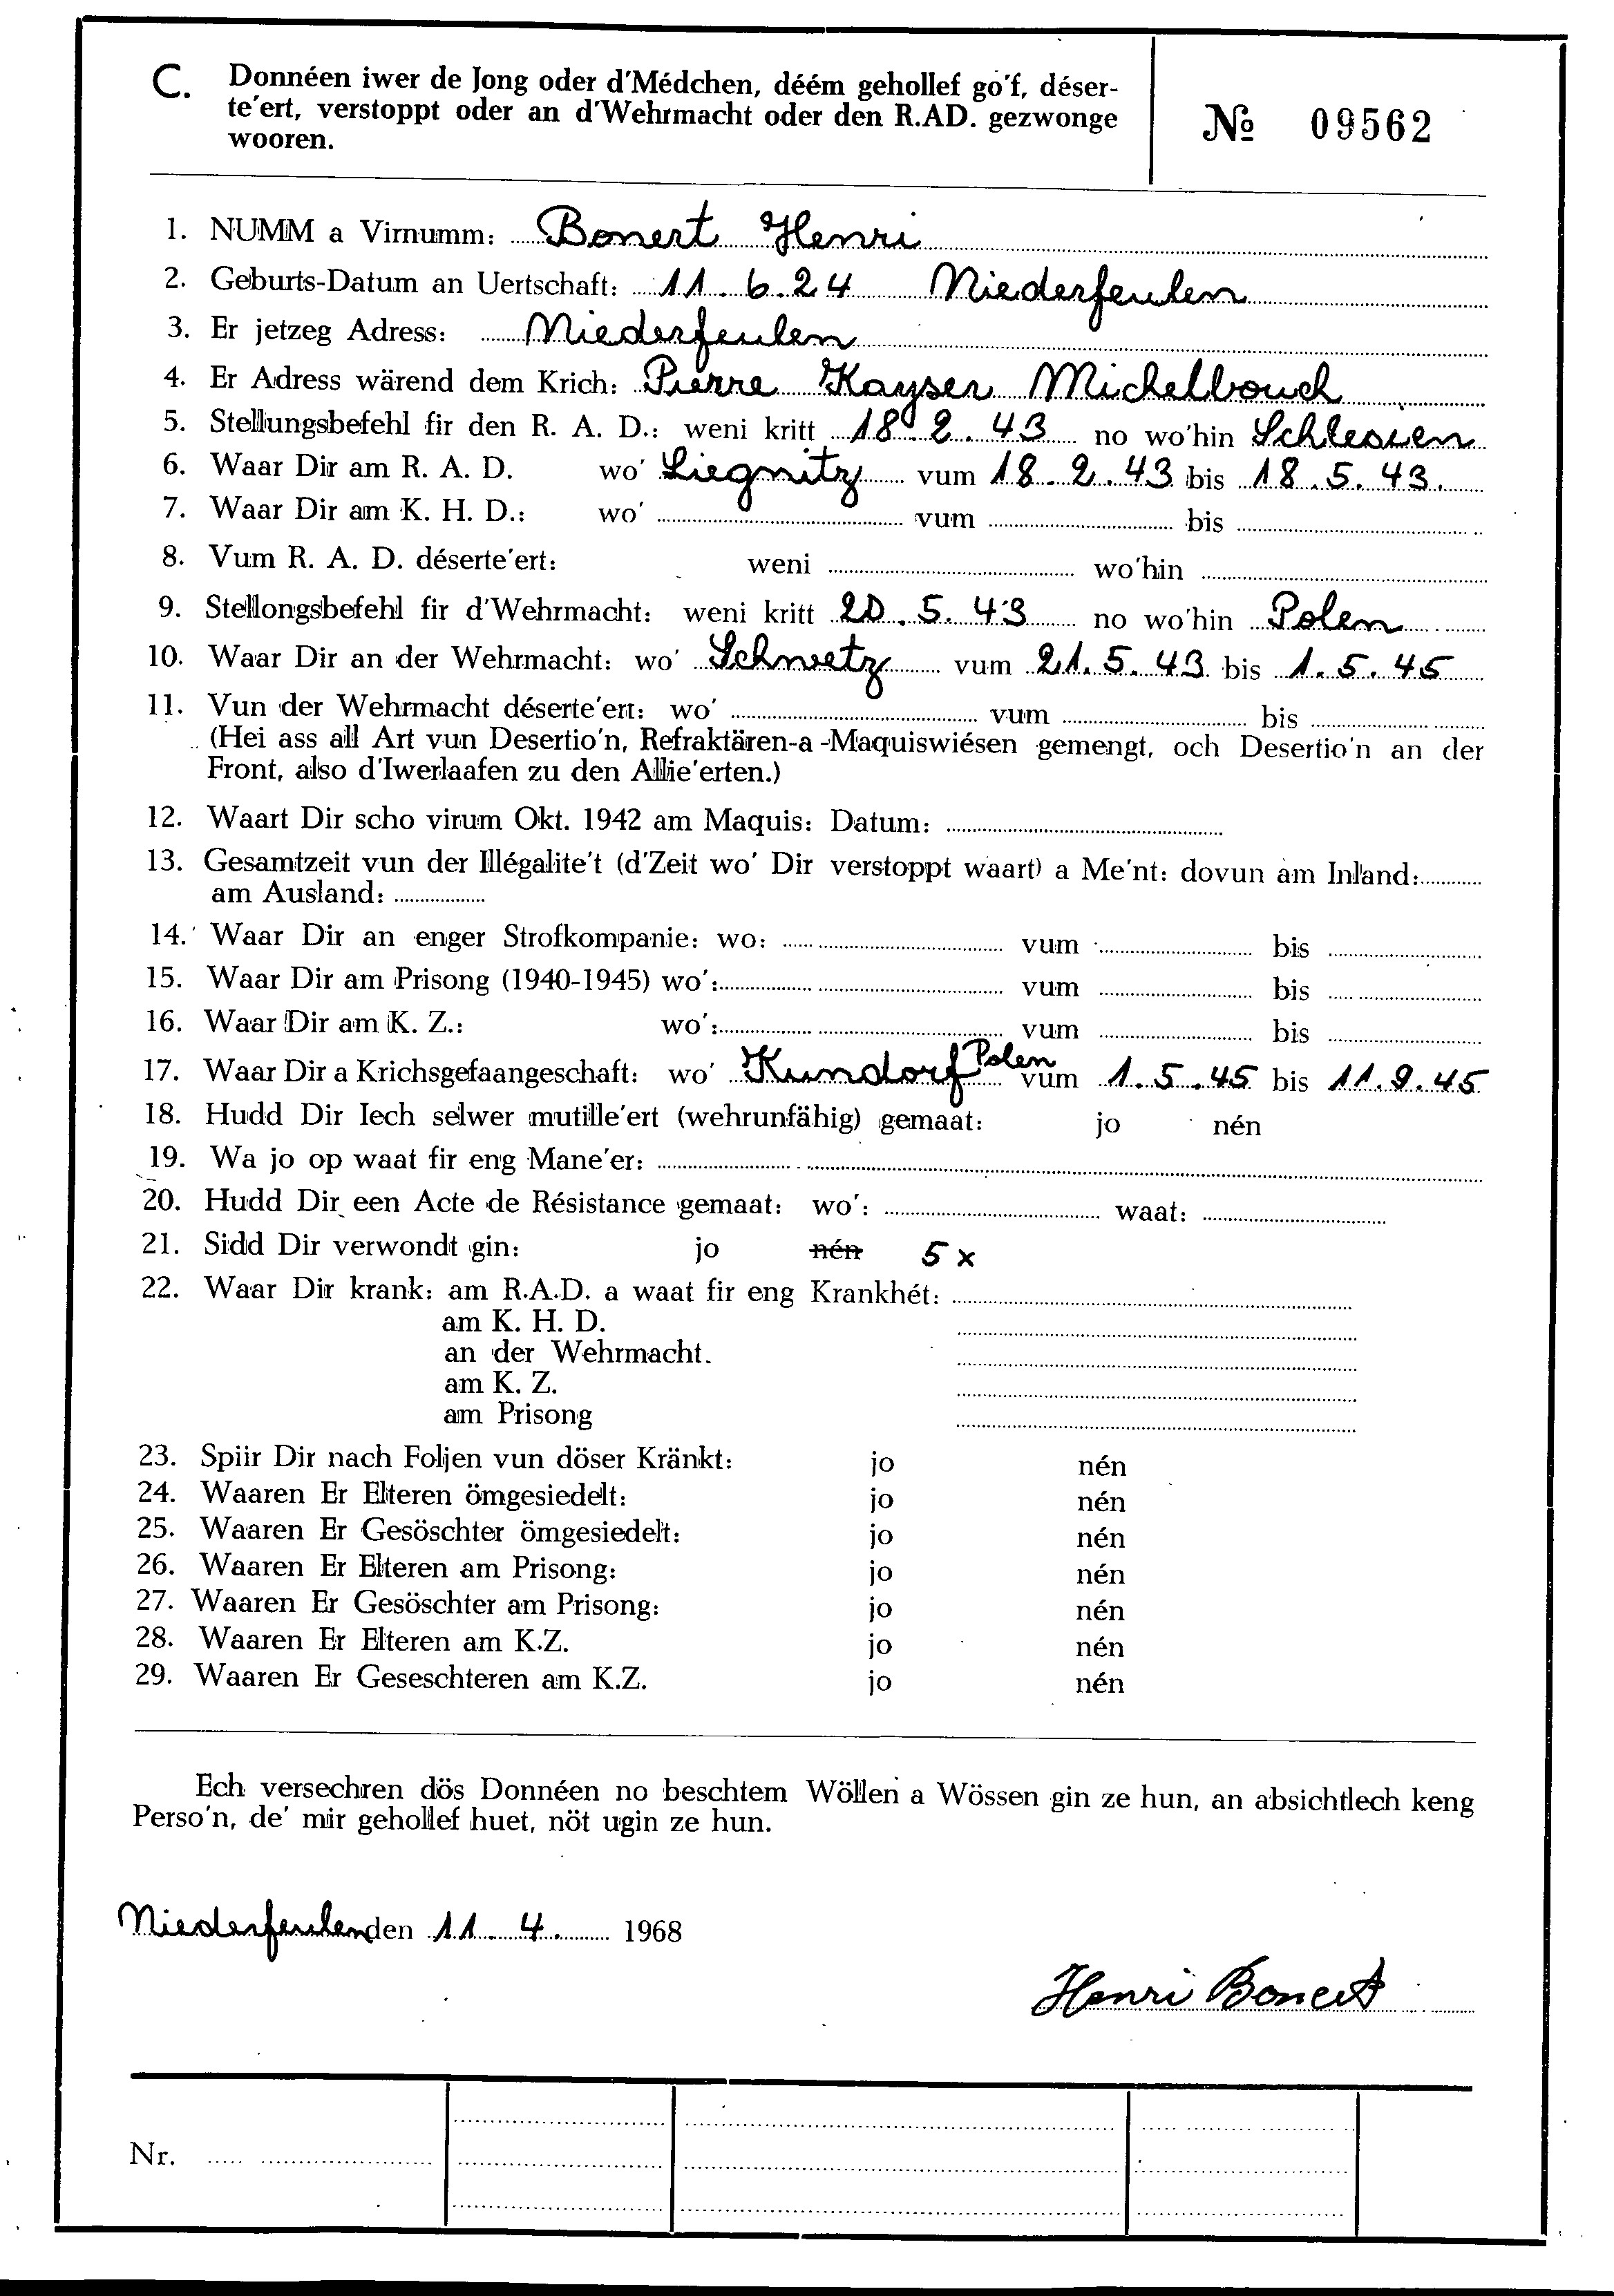 C. Donnéen iwer de Jong oder d'Médchen, déém gehollef go'f, déser-
te'ert, verstoppt oder an d'Wehrmacht oder den R.AD. gezwonge
wooren.
№ 09562
1. NUMM a Virnumm: Bonert Henri
2. Geburts-Datum an Uertschaft: 11.6.24 Niederfeulen
3. Er jetzeg Adress: Niederfeulen
4. Er Adress wärend dem Krich: Pierre Kayser Michelbouch
5. Stellungsbefehl fir den R. A. D.: weni kritt 18.2.43 no wo'hin Schlesien
6. Waar Dir am R. A. D. wo' Liegnitz vum 18.2.43 bis 18.5.43.
7. Waar Dir am K. H. D.: wo' vum bis
8. Vum R. A. D. déserte'ert: weni wo'hin
9. Stellongsbefehl fir d'Wehrmacht: weni kritt 20.5.43 no wo'hin Polen
10. Waar Dir an der Wehrmacht: wo' Schwetz vum 21.5.43 bis 1.5.45
11. Vun der Wehrmacht déserte'ert: wo' vum bis
(Hei ass all Art vun Desertio'n, Refraktären-a-Maquiswiésen gemengt, och Desertio'n an der
Front, also d'Iwerlaafen zu den Allie'erten.)
12. Waart Dir scho virum Okt. 1942 am Maquis: Datum:
13. Gesamtzeit vun der Illégalite't (d'Zeit wo' Dir verstoppt waart) a Me'nt: dovun am Inland:
am Ausland:
14. Waar Dir an enger Strofkompanie: wo: vum bis
15. Waar Dir am Prisong (1940-1945) wo': vum bis
16. Waar Dir am K. Z.: wo': vum bis
17. Waar Dir a Krichsgefaangeschaft: wo' Kundorf Polen vum 1.5.45 bis 11.9.45
18. Hudd Dir Iech selwer mutille'ert (wehrunfähig) gemaat: jo nén
19. Wa jo op waat fir eng Mane'er:
20. Hudd Dir een Acte de Résistance gemaat: wo': waat:
21. Sidd Dir verwondt gin: jo nén 5 x
22. Waar Dir krank: am R.A.D. a waat fir eng Krankhét:
am K. H. D.
an der Wehrmacht.
am K. Z.
am Prisong
23. Spiir Dir nach Foljen vun döser Kränkt: jo nén
24. Waaren Er Elteren ömgesiedelt: jo nén
25. Waaren Er Gesöschter ömgesiedelt: jo nén
26. Waaren Er Elteren am Prisong: jo nén
27. Waaren Er Gesöschter am Prisong: jo nén
28. Waaren Er Elteren am K.Z. jo nén
29. Waaren Er Geseschteren am K.Z. jo nén
Ech versechren dös Donnéen no beschtem Wöllen a Wössen gin ze hun, an absichtlech keng
Perso'n, de' mir gehollef huet, nöt ugin ze hun.
Niederfeulen den 11.4. 1968
Henri Bonert
Nr.